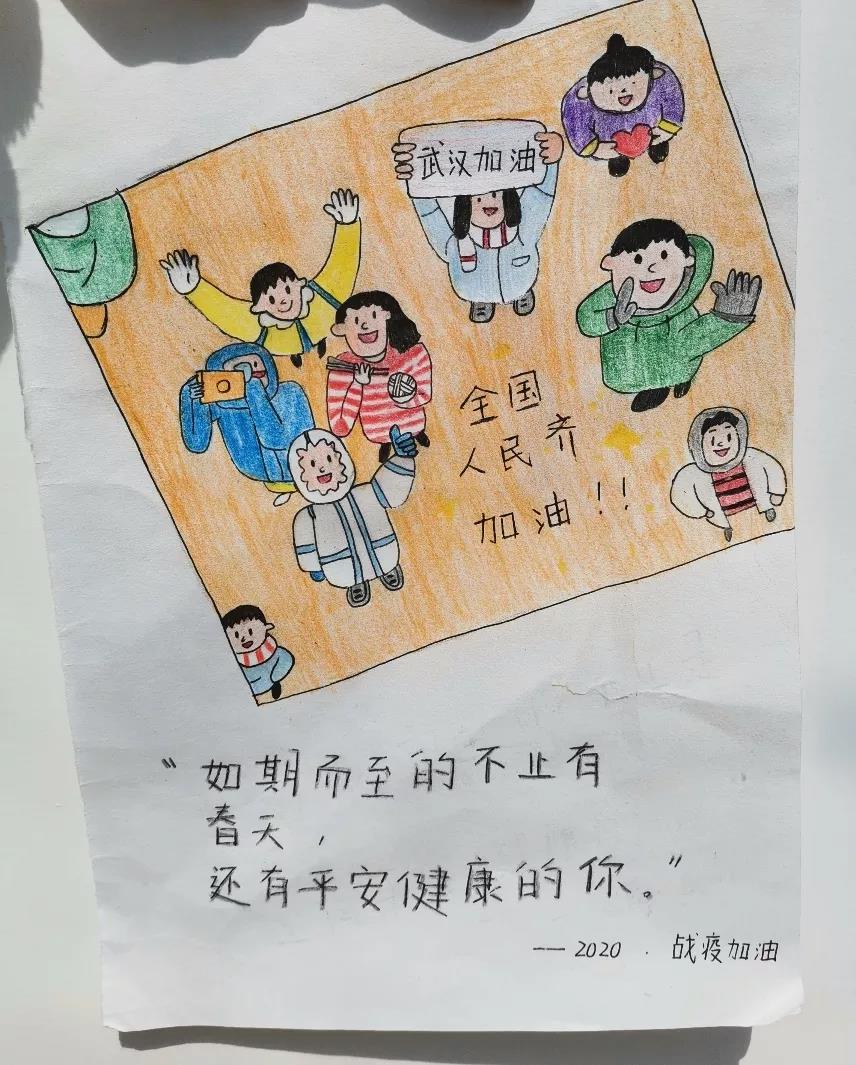 武汉加油
全国
人民齐
加油!!
“如期而至的不止有
春天,
还有平安健康的你。”
——2020.战疫加油